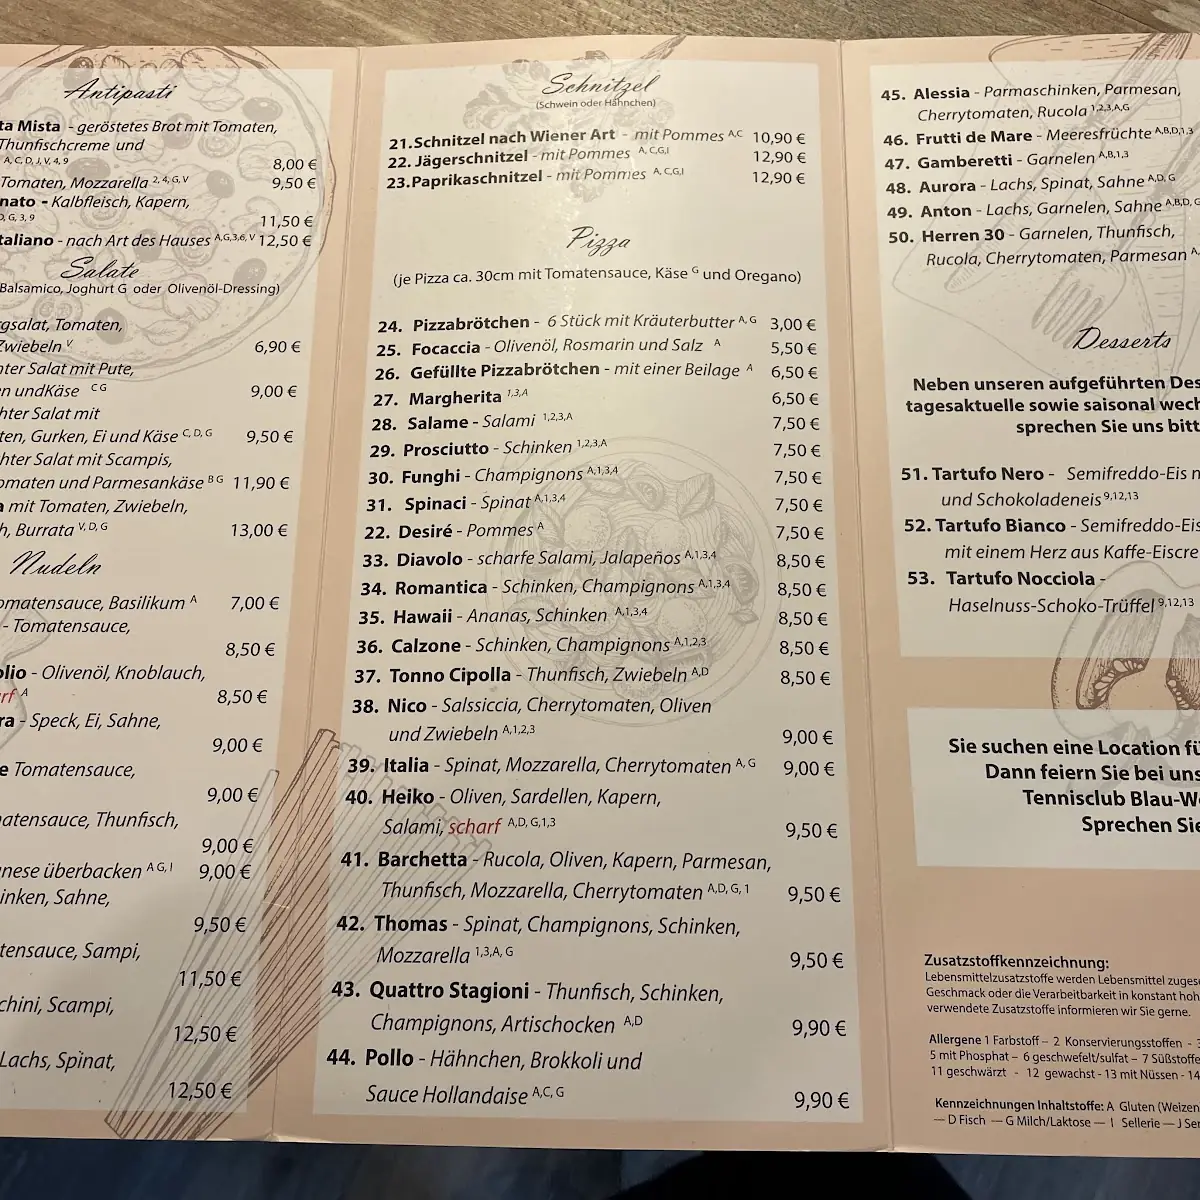 Antipasti
ta Mista - geröstetes Brot mit Tomaten,
Thunfischcreme und
A, C, D, J, V, 4, 9 8,00 €
Tomaten, Mozzarella 2, 4, G, V 9,50 €
nato - Kalbfleisch, Kapern,
D, G, 3, 9 11,50 €
taliano - nach Art des Hauses A,G,3,6, V 12,50 €
Salate
Balsamico, Joghurt G oder Olivenöl-Dressing)
rgsalat, Tomaten,
Zwiebeln V 6,90 €
hter Salat mit Pute,
n undKäse C G 9,00 €
hter Salat mit
ten, Gurken, Ei und Käse C, D, G 9,50 €
hter Salat mit Scampis,
omaten und Parmesankäse B G 11,90 €
a mit Tomaten, Zwiebeln,
h, Burrata V, D, G 13,00 €
Nudeln
omatensauce, Basilikum A 7,00 €
- Tomatensauce,
8,50 €
olio - Olivenöl, Knoblauch,
rf A 8,50 €
ra - Speck, Ei, Sahne,
9,00 €
e Tomatensauce,
9,00 €
matensauce, Thunfisch,
9,00 €
nese überbacken A G, I 9,00 €
inken, Sahne,
9,50 €
tensauce, Sampi,
11,50 €
chini, Scampi,
12,50 €
Lachs, Spinat,
12,50 €
Schnitzel
(Schwein oder Hähnchen)
21.Schnitzel nach Wiener Art - mit Pommes A,C 10,90 €
22. Jägerschnitzel - mit Pommes A, C,G,I 12,90 €
23.Paprikaschnitzel - mit Pommes A, C,G,I 12,90 €
Pizza
(je Pizza ca. 30cm mit Tomatensauce, Käse G und Oregano)
24. Pizzabrötchen - 6 Stück mit Kräuterbutter A, G 3,00 €
25. Focaccia - Olivenöl, Rosmarin und Salz A 5,50 €
26. Gefüllte Pizzabrötchen - mit einer Beilage A 6,50 €
27. Margherita 1,3,A 6,50 €
28. Salame - Salami 1,2,3,A 7,50 €
29. Prosciutto - Schinken 1,2,3,A 7,50 €
30. Funghi - Champignons A,1,3,4 7,50 €
31. Spinaci - Spinat A,1,3,4 7,50 €
22. Desiré - Pommes A 7,50 €
33. Diavolo - scharfe Salami, Jalapeños A,1,3,4 8,50 €
34. Romantica - Schinken, Champignons A,1,3,4 8,50 €
35. Hawaii - Ananas, Schinken A,1,3,4 8,50 €
36. Calzone - Schinken, Champignons A,1,2,3 8,50 €
37. Tonno Cipolla - Thunfisch, Zwiebeln A,D 8,50 €
38. Nico - Salssiccia, Cherrytomaten, Oliven
und Zwiebeln A,1,2,3 9,00 €
39. Italia - Spinat, Mozzarella, Cherrytomaten A, G 9,00 €
40. Heiko - Oliven, Sardellen, Kapern,
Salami, scharf A,D, G,1,3 9,50 €
41. Barchetta - Rucola, Oliven, Kapern, Parmesan,
Thunfisch, Mozzarella, Cherrytomaten A,D, G, 1 9,50 €
42. Thomas - Spinat, Champignons, Schinken,
Mozzarella 1,3,A, G 9,50 €
43. Quattro Stagioni - Thunfisch, Schinken,
Champignons, Artischocken A,D 9,90 €
44. Pollo - Hähnchen, Brokkoli und
Sauce Hollandaise A,C, G 9,90 €
45. Alessia - Parmaschinken, Parmesan,
Cherrytomaten, Rucola 1,2,3,A,G
46. Frutti de Mare - Meeresfrüchte A,B,D,1,3
47. Gamberetti - Garnelen A,B,1,3
48. Aurora - Lachs, Spinat, Sahne A,D, G
49. Anton - Lachs, Garnelen, Sahne A,B,D, G
50. Herren 30 - Garnelen, Thunfisch,
Rucola, Cherrytomaten, Parmesan A,
Desserts
Neben unseren aufgeführten Des
tagesaktuelle sowie saisonal wech
sprechen Sie uns bitt
51. Tartufo Nero - Semifreddo-Eis n
und Schokoladeneis 9,12,13
52. Tartufo Bianco - Semifreddo-Eis
mit einem Herz aus Kaffe-Eiscre
53. Tartufo Nocciola -
Haselnuss-Schoko-Trüffel 9,12,13
Sie suchen eine Location fü
Dann feiern Sie bei uns
Tennisclub Blau-We
Sprechen Sie
Zusatzstoffkennzeichnung:
Lebensmittelzusatzstoffe werden Lebensmittel zugese
Geschmack oder die Verarbeitbarkeit in konstant hoh
verwendete Zusatzstoffe informieren wir Sie gerne.
Allergene 1 Farbstoff – 2 Konservierungsstoffen - 3
5 mit Phosphat – 6 geschwefelt/sulfat – 7 Süßstoffe
11 geschwärzt - 12 gewachst - 13 mit Nüssen - 14
Kennzeichnungen Inhaltstoffe: A Gluten (Weizen
— D Fisch — G Milch/Laktose — I Sellerie — J Sen